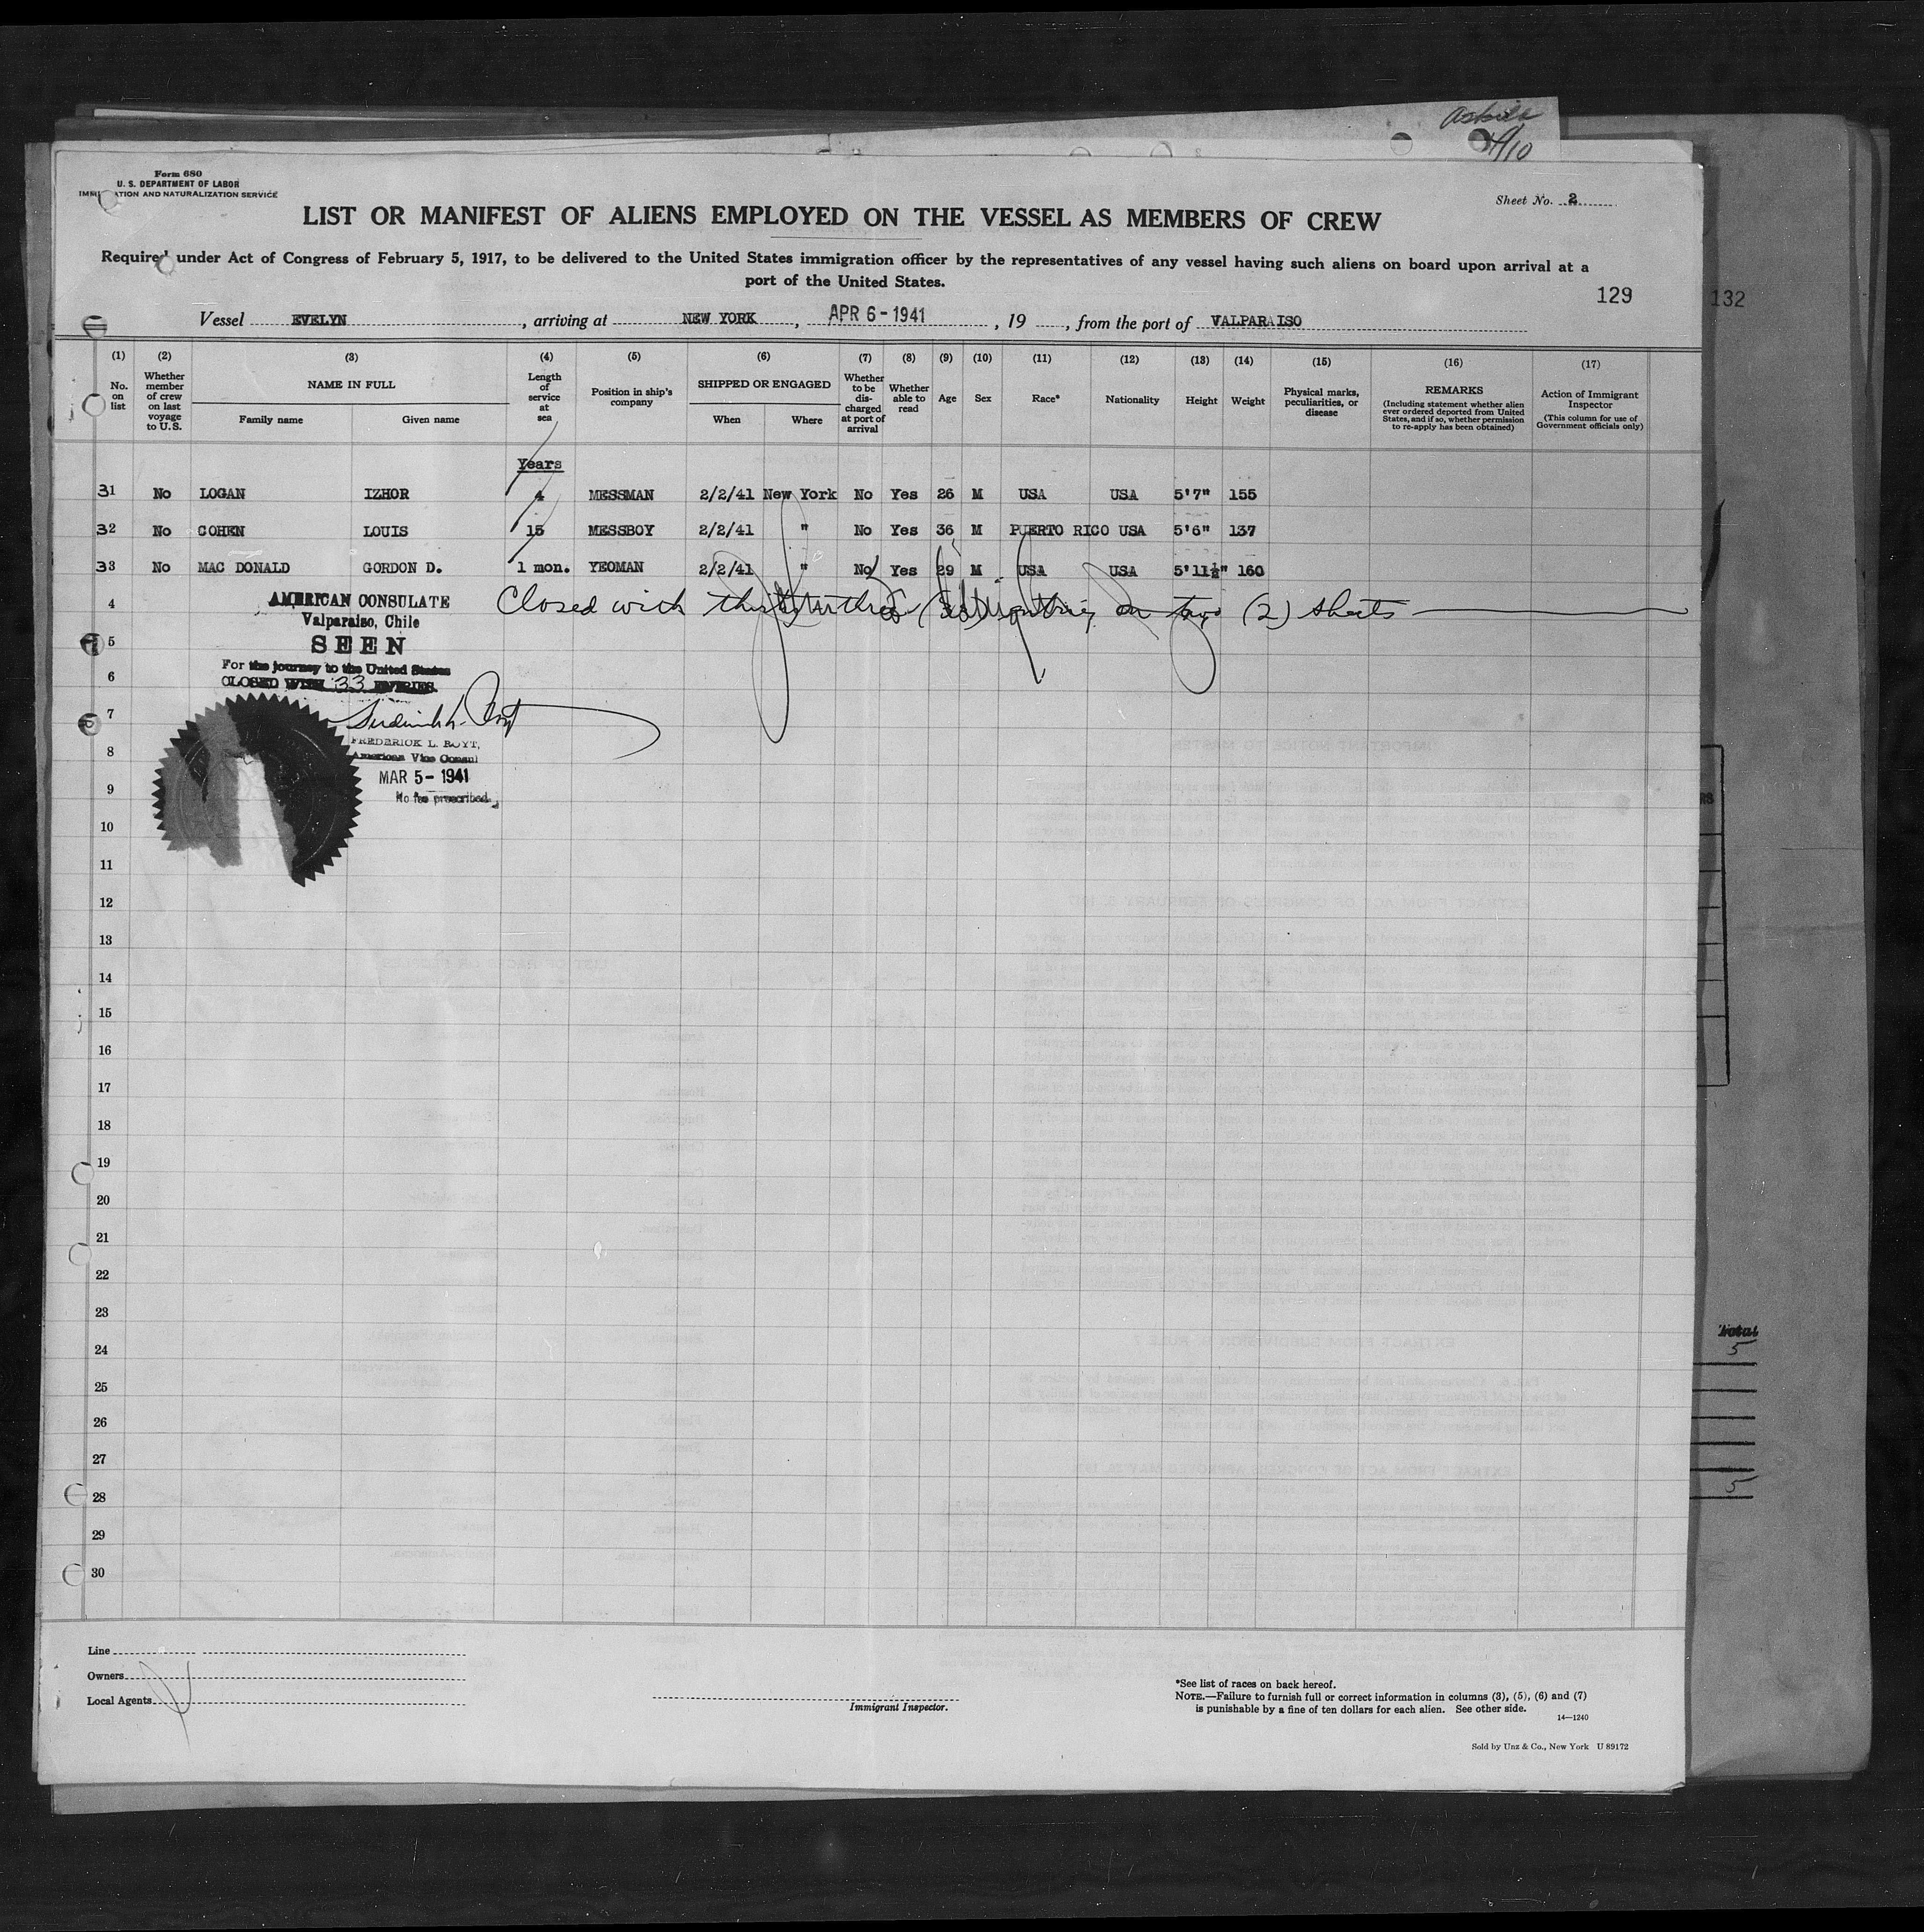 Form 680
U. S. DEPARTMENT OF LABOR
IMMIGRATION AND NATURALIZATION SERVICE
Sheet No. 2
LIST OR MANIFEST OF ALIENS EMPLOYED ON THE VESSEL AS MEMBERS OF CREW
Required under Act of Congress of February 5, 1917, to be delivered to the United States immigration officer by the representatives of any vessel having such aliens on board upon arrival at a
port of the United States.
129 132
Vessel EVELYN, arriving at NEW YORK, APR 6-1941, 19, from the port of VALPARAISO
(1) (2) (3) (4) (5) (6) (7) (8) (9) (10) (11) (12) (13) (14) (15) (16) (17)
No. on list
Whether member of crew on last voyage to U.S.
NAME IN FULL
Family name Given name
Length of service at sea
Position in ship's company
SHIPPED OR ENGAGED
When Where
Whether to be discharged at port of arrival
Whether able to read
Age
Sex
Race*
Nationality
Height
Weight
Physical marks, peculiarities, or disease
REMARKS
(Including statement whether alien ever ordered deported from United States, and if so, whether permission to re-apply has been obtained)
Action of Immigrant Inspector
(This column for use of Government officials only)
Years
31 No LOGAN IZHOR 4 MESSMAN 2/2/41 New York No Yes 26 M USA USA 5'7" 155
32 No COHEN LOUIS 15 MESSBOY 2/2/41 " No Yes 36 M PUERTO RICO USA 5'6" 137
33 No MAC DONALD GORDON D. 1 mon. YEOMAN 2/2/41 " No Yes 29 M USA USA 5'11½" 160
4 Closed with on two (2) sheets
AMERICAN CONSULATE
Valparaiso, Chile
5 SEEN
For the journey to the United States
6 CLOSED WITH 33 ENTRIES.
7
FREDERICK L. ROYT,
8 American Vice Consul
MAR 5-1941
9 No fee prescribed.
10
11
12
13
14
15
16
17
18
19
20
21
22
23
24
25
26
27
28
29
30
Total
5
5
Line
Owners
Local Agents
Immigrant Inspector.
*See list of races on back hereof.
NOTE.—Failure to furnish full or correct information in columns (3), (5), (6) and (7)
is punishable by a fine of ten dollars for each alien. See other side.
14—1240
Sold by Unz & Co., New York U 89172